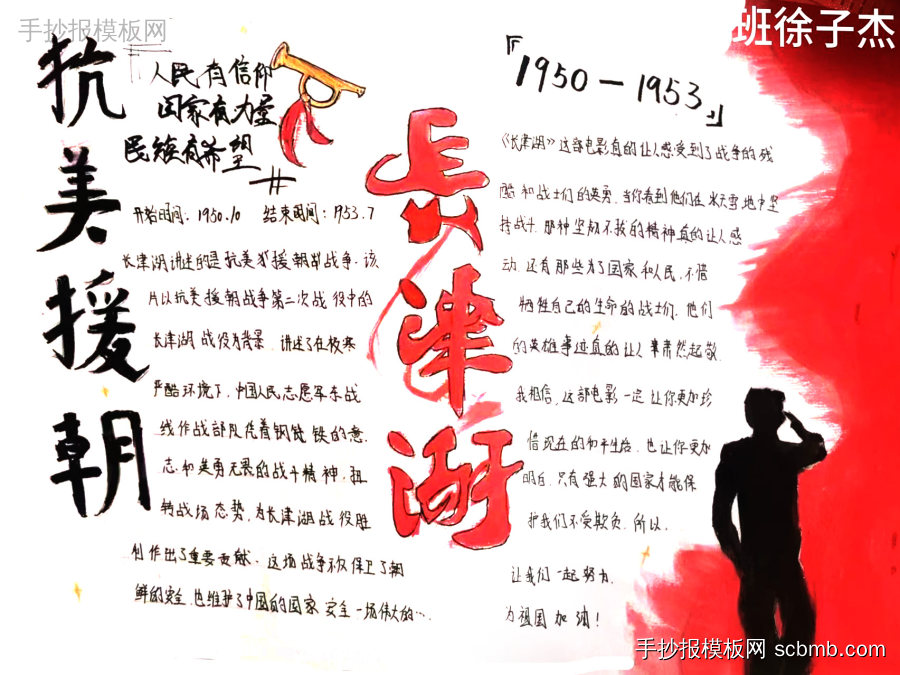 手抄报模板网
班徐子杰
抗美援朝
人民有信仰
国家有力量
民族有希望
开始时间：1950.10 结束时间：1953.7
长津湖讲述的是抗美援朝战争，该
片以抗美援朝战争第二次战役中的
长津湖战役为背景，讲述了在极寒
严酷环境下，中国人民志愿军东战
线作战部队凭着钢铁的意
志和英勇无畏的战斗精神，扭
转战场态势，为长津湖战役胜
利作出了重要贡献。这场战争不仅保卫了朝
鲜的安全，也维护了中国的国家安全一场伟大的…
長津湖
『1950—1953』
《长津湖》这部电影真的让人感受到了战争的残
酷和战士们的英勇，当你看到他们在冰天雪地中坚
持战斗，那种坚韧不拔的精神真的让人感
动，还有那些为了国家和人民，不惜
牺牲自己的生命的战士们，他们
的英雄事迹真的让人肃然起敬，
我相信，这部电影一定让你更加珍
惜现在的和平生活，也让你更加
明白，只有强大的国家才能保
护我们不受欺负，所以，
让我们一起努力，
为祖国加油！
手抄报模板网 scbmb.com